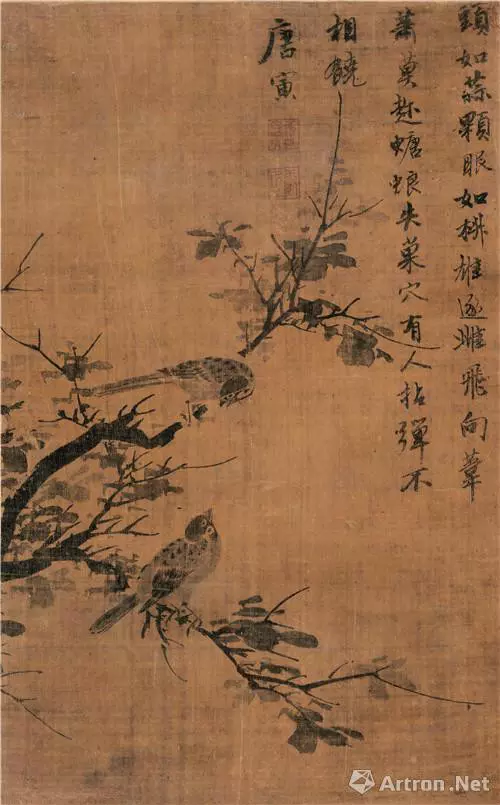 頭如蒜顆眼如椒雄逐雌飛向葦
蕭莫趁螗蜋失巢穴有人拈彈不
相饒
唐寅
Artron.Net